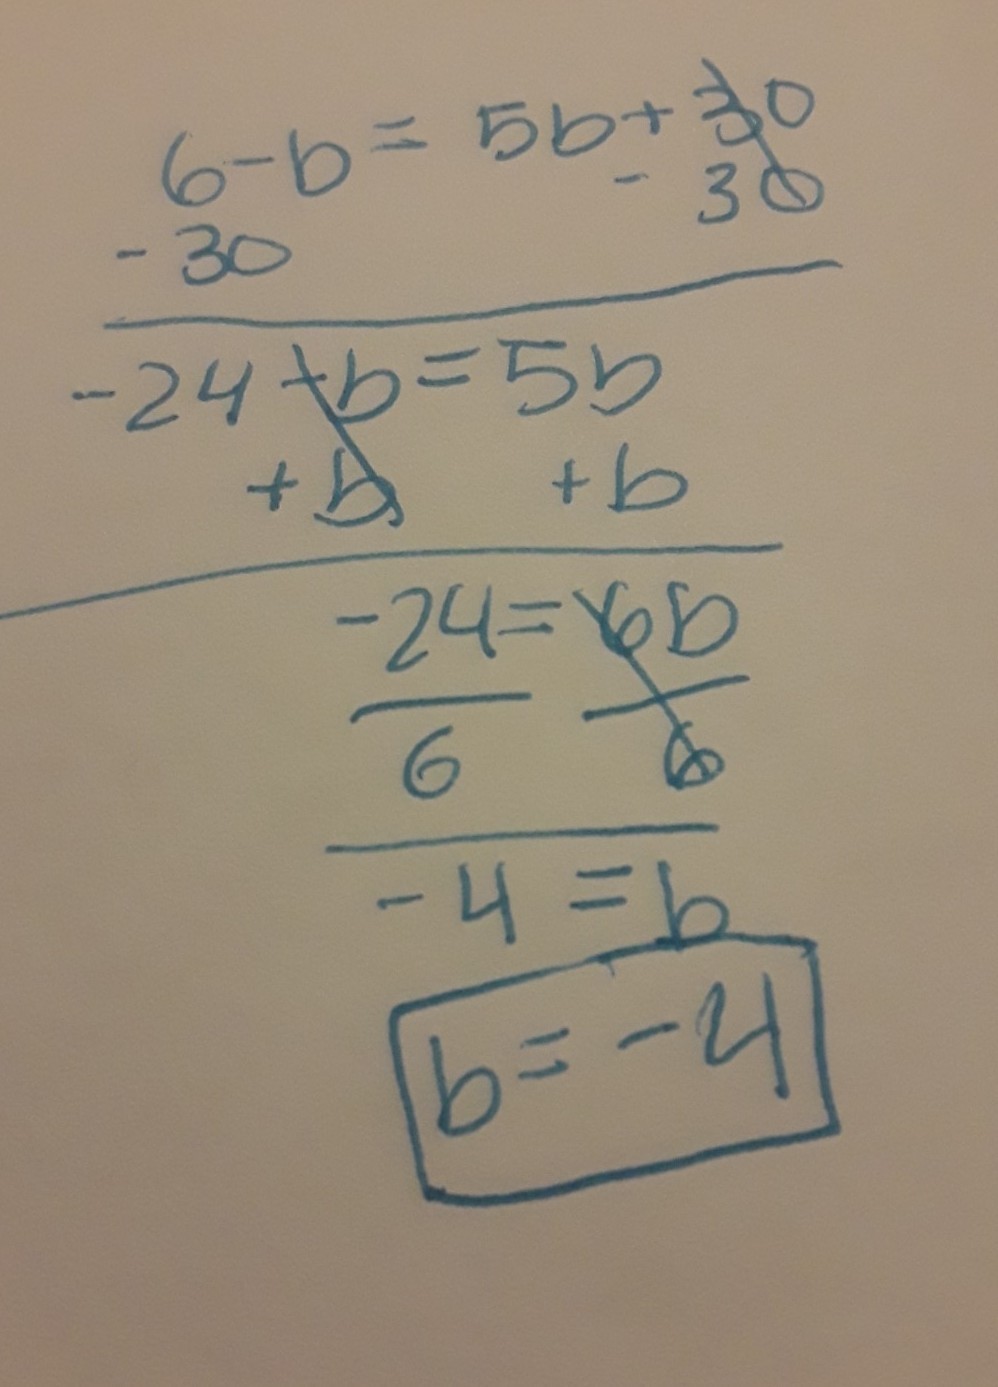 6-b= 5b+ 30
- 30
- 30
-24 -b=5b
+b +b
-24=6b
6 6
-4 =b
b= -4